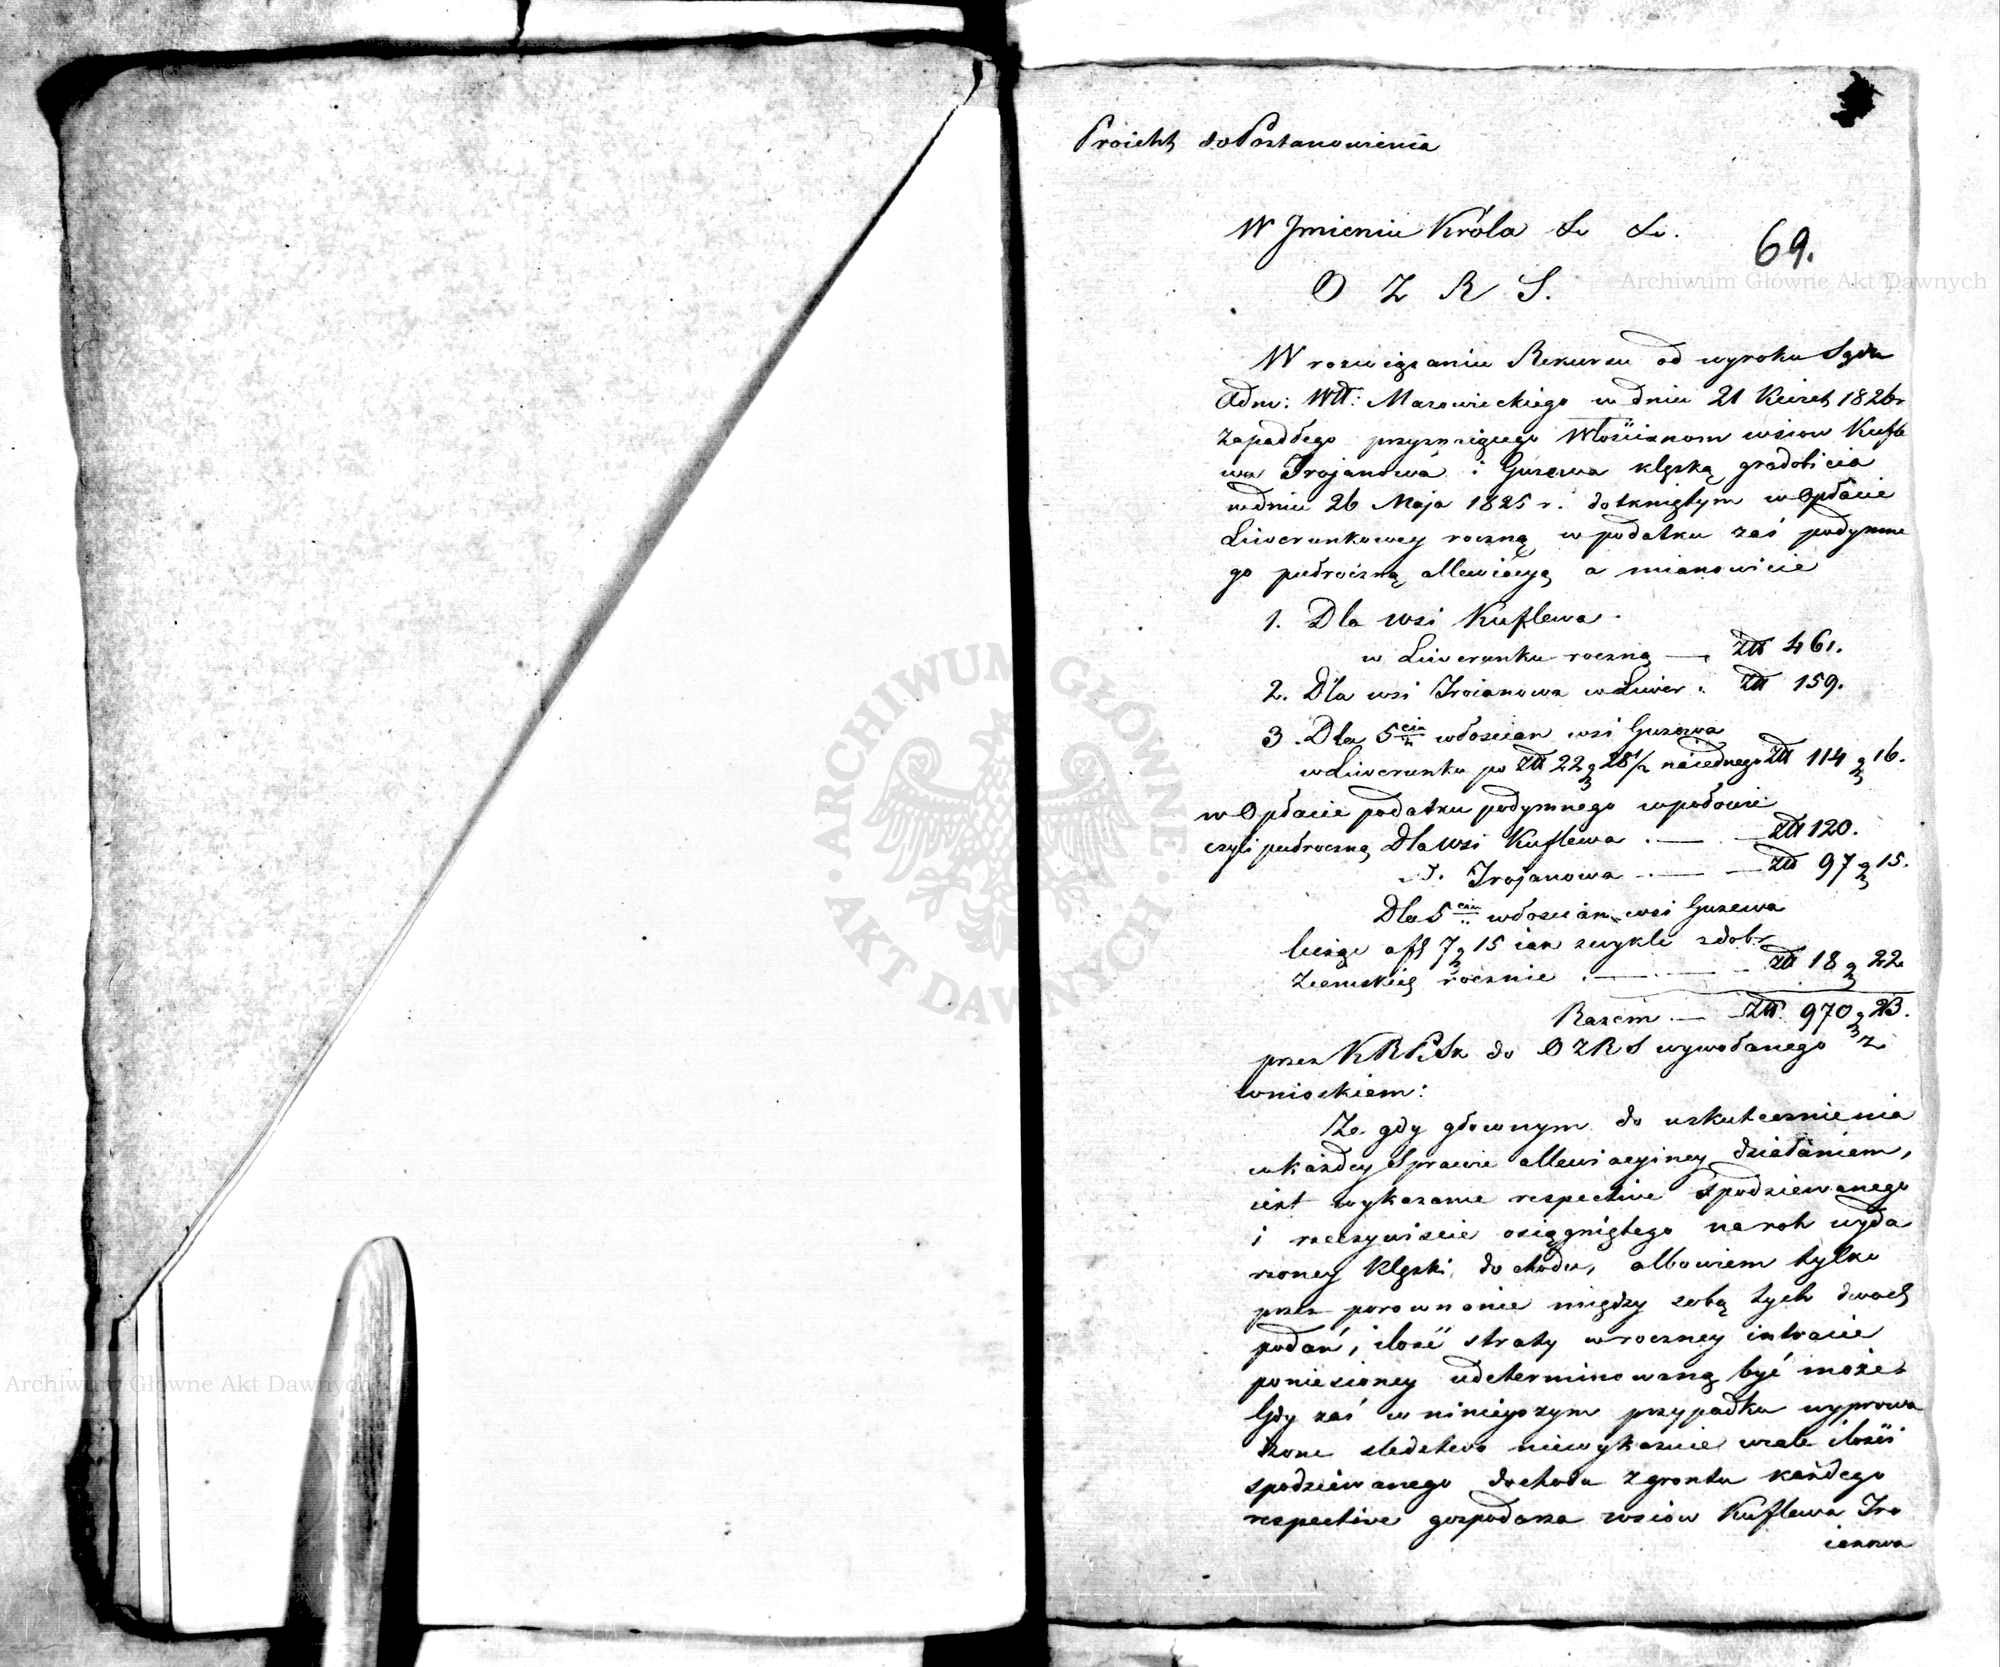 Proiekt do Postanowienia
W Jmieniu Króla &. &.
69.
O Z R S.
W rozwiązaniu Rekursu od wyroku Sądu
Adm: Wtt: Mazowieckiego w dniu 21 1826 r
zapadłego przyznaiącego Włościanom wsiow Kufle
wa Trojanowa i Guzewa klęską gradobicia
w dniu 26 Maja 1825 r. dotkniętym w Opłacie
Liwerunkowey roczną w podatku zaś podymne
go pułroczną allewiacyą a mianowicie
1. Dla wsi Kuflewa.
w Liwerunku roczną — Ztt 461.
2. Dla wsi Troianowa w Liwer. Ztt 159.
3. Dla 5ciu włoscian wsi Guzewa
w Liwerunku po Ztt 22 g 28½ na iednego Ztt 114 g 16.
w Opłacie podatku podymnego w połowie
czyli pułroczną Dla wsi Kuflewa . — — Ztt 120.
Trojanowa . — — Ztt 97 g 15.
Dla 5ciu włoscian wsi Guzewa
licząc a fl 7 g 15 iak zwykle z dobr
Ziemskich rocznie . — — Ztt 18 g 22
Razem — Ztt. 970 g 23.
przez KRPiSk do OZRS wywołanego z
wnioskiem:
Że gdy głownym do uskutecznienia
w każdey Sprawie allewiacyiney działaniem,
iest wykazanie respective spodziewanego
i rzeczywiscie osiągniętego na rok wyda
rzoney klęski dochodu, albowiem tylko
przez porownanie między sobą tych dwoch
podań, ilość straty w roczney intracie
poniesioney udeterminowaną być może
Gdy zaś w ninieyszym przypadku wyprowa
dzone sledztwo niewykazuie wcale ilości
spodziewanego dochodu z gruntu każdego
respective gospodarza wsiow Kuflewa Tro
ianowa
Archiwum Główne Akt Dawnych
Archiwum Główne Akt Dawnych
ARCHIWUM GŁÓWNE · AKT DAWNYCH ·